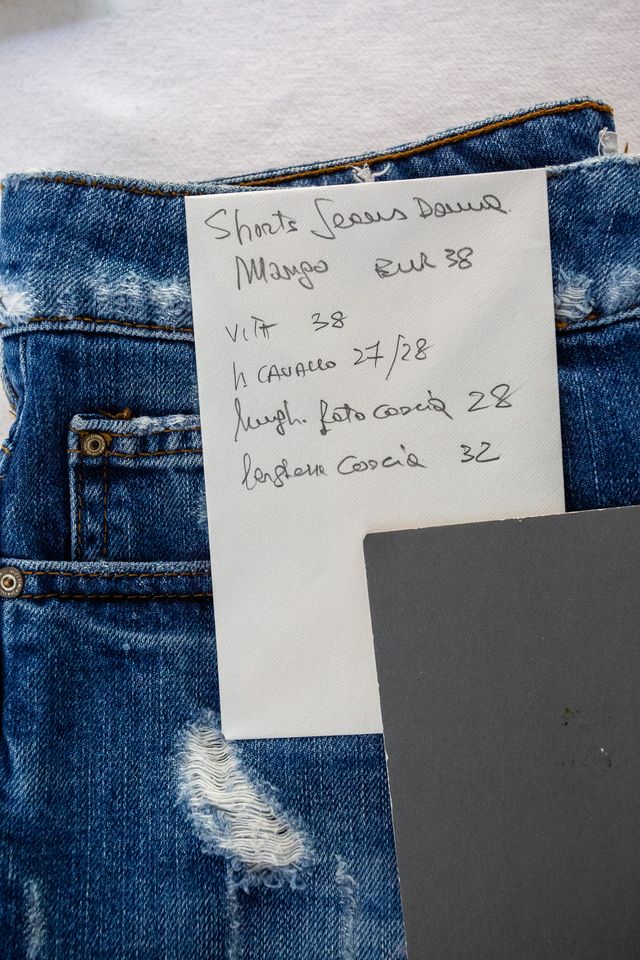 Shorts Jeans Donna
Mango EUR 38
VITA 38
h CAVALLO 27/28
lungh. lato coscia 28
larghezza coscia 32